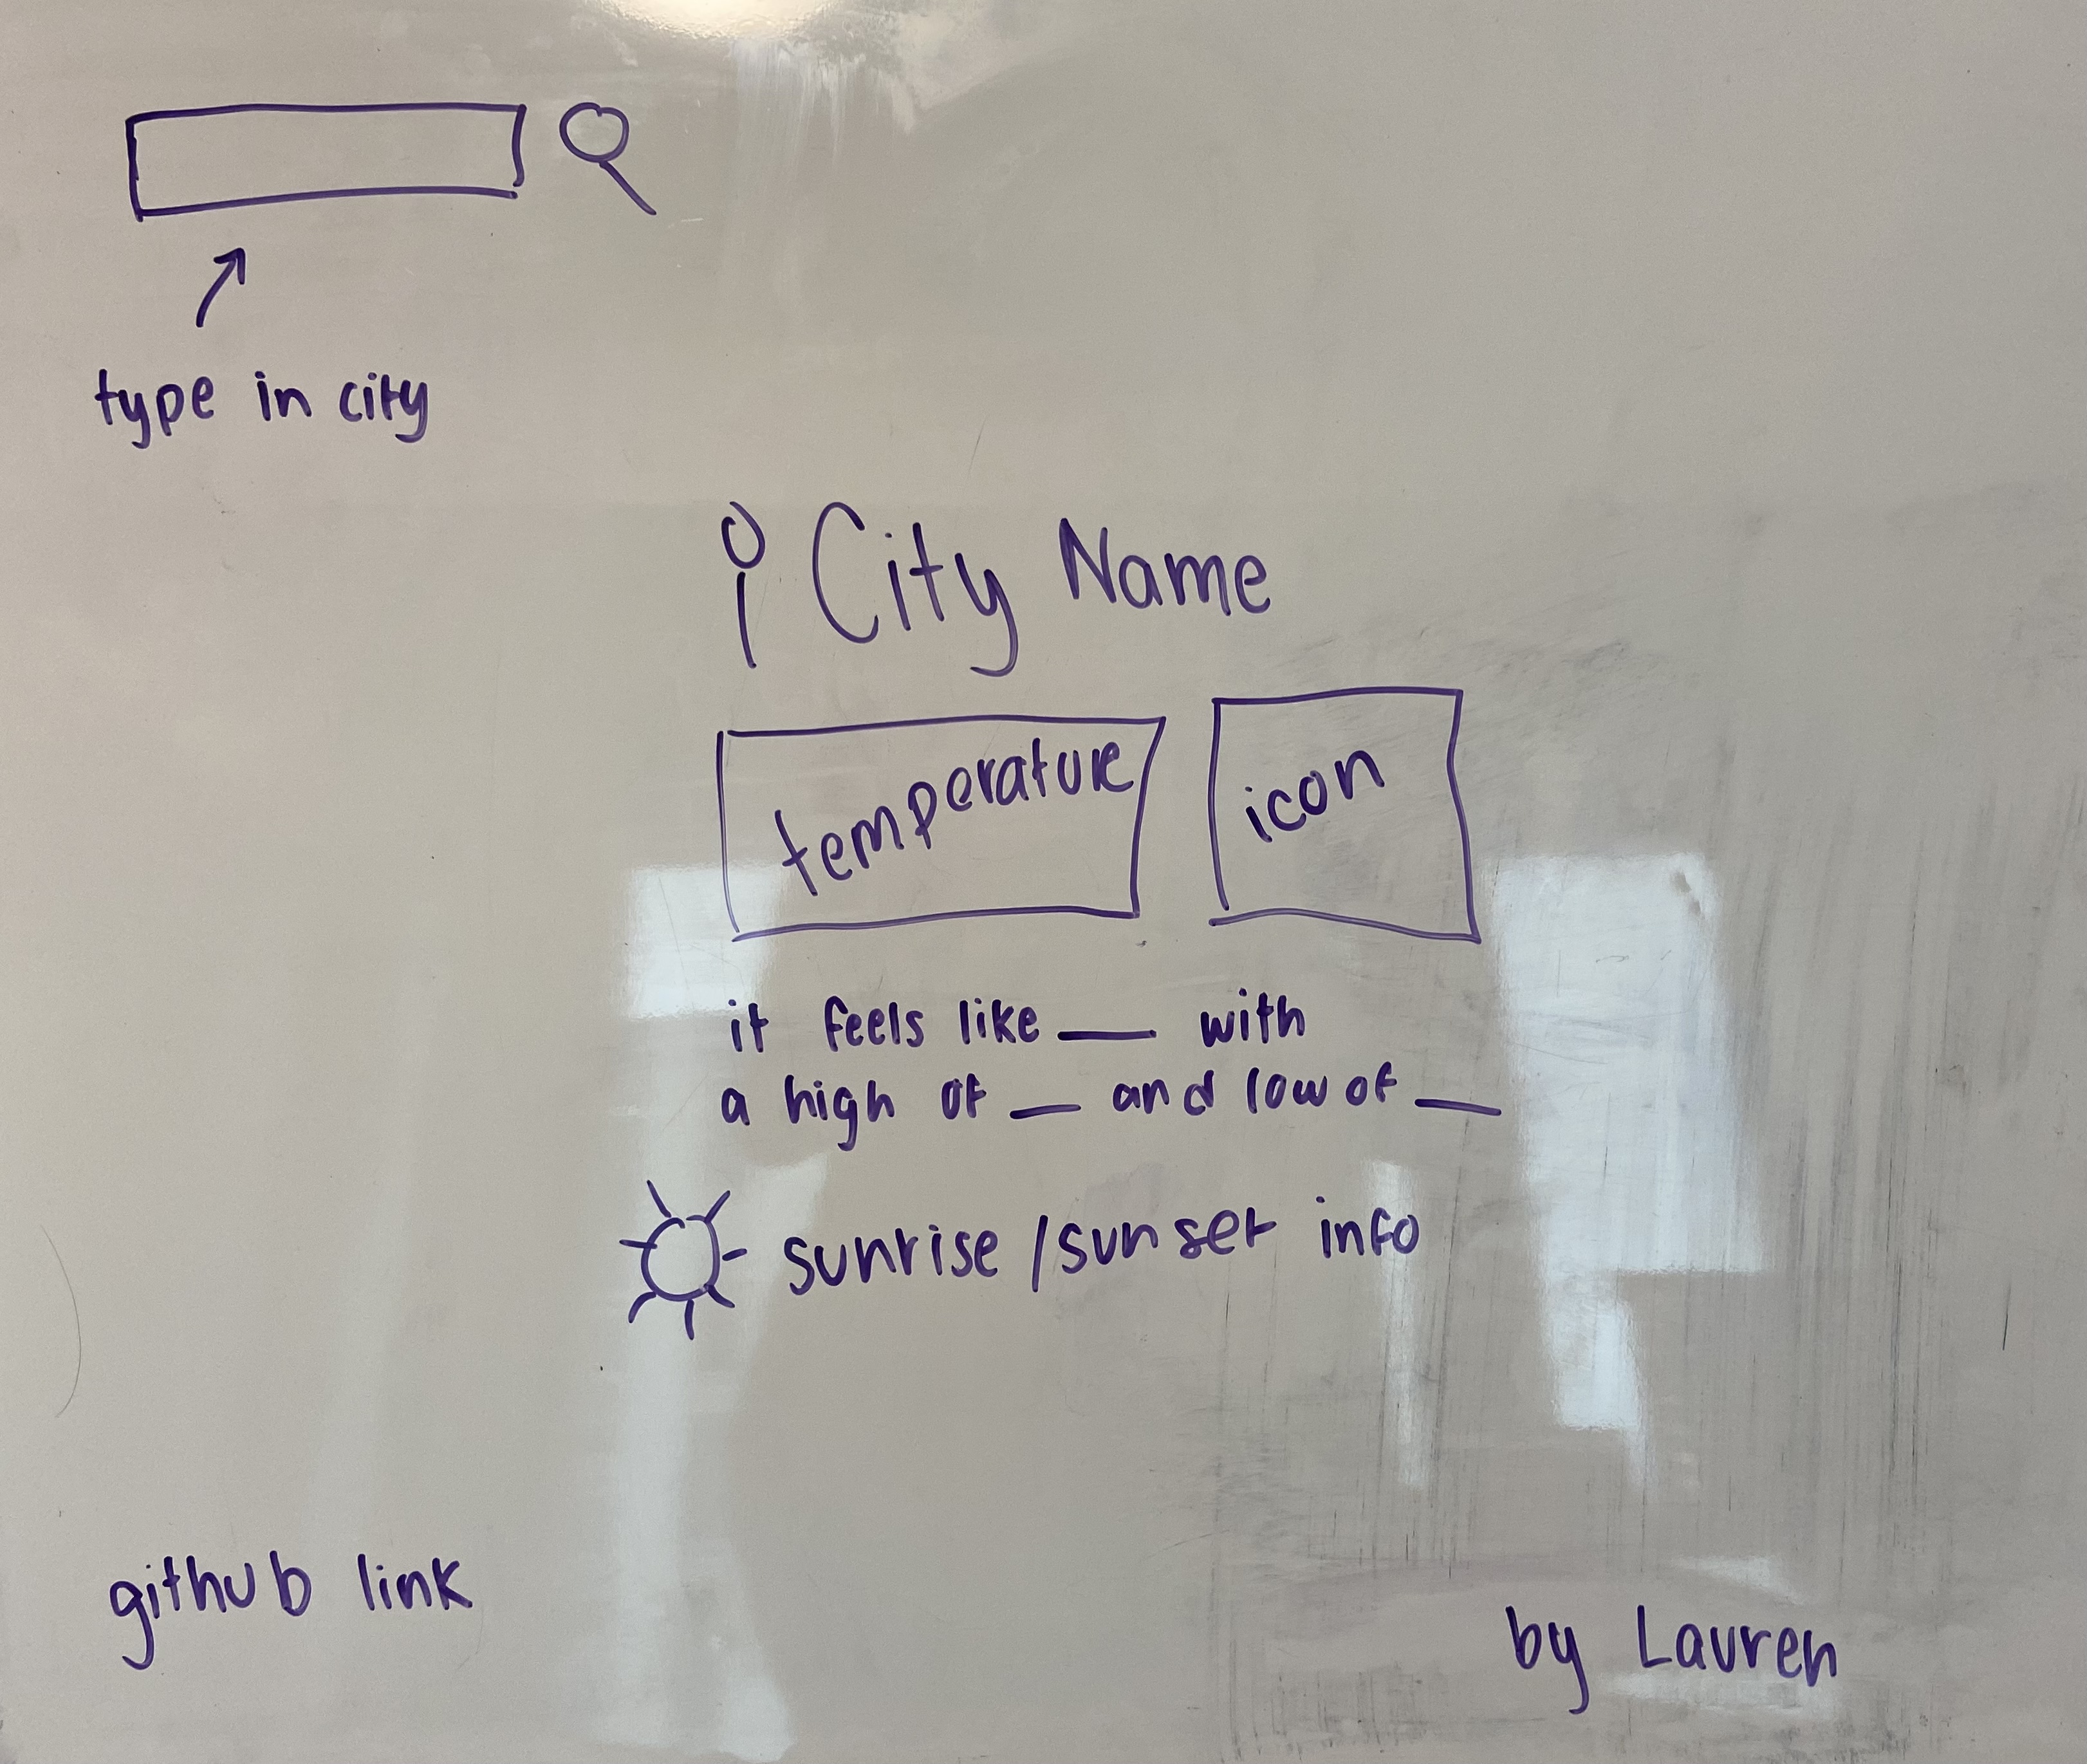 type in city
City Name
temperature
icon
it feels like ___ with
a high of __ and low of __
sunrise/sunset info
github link
by Lauren